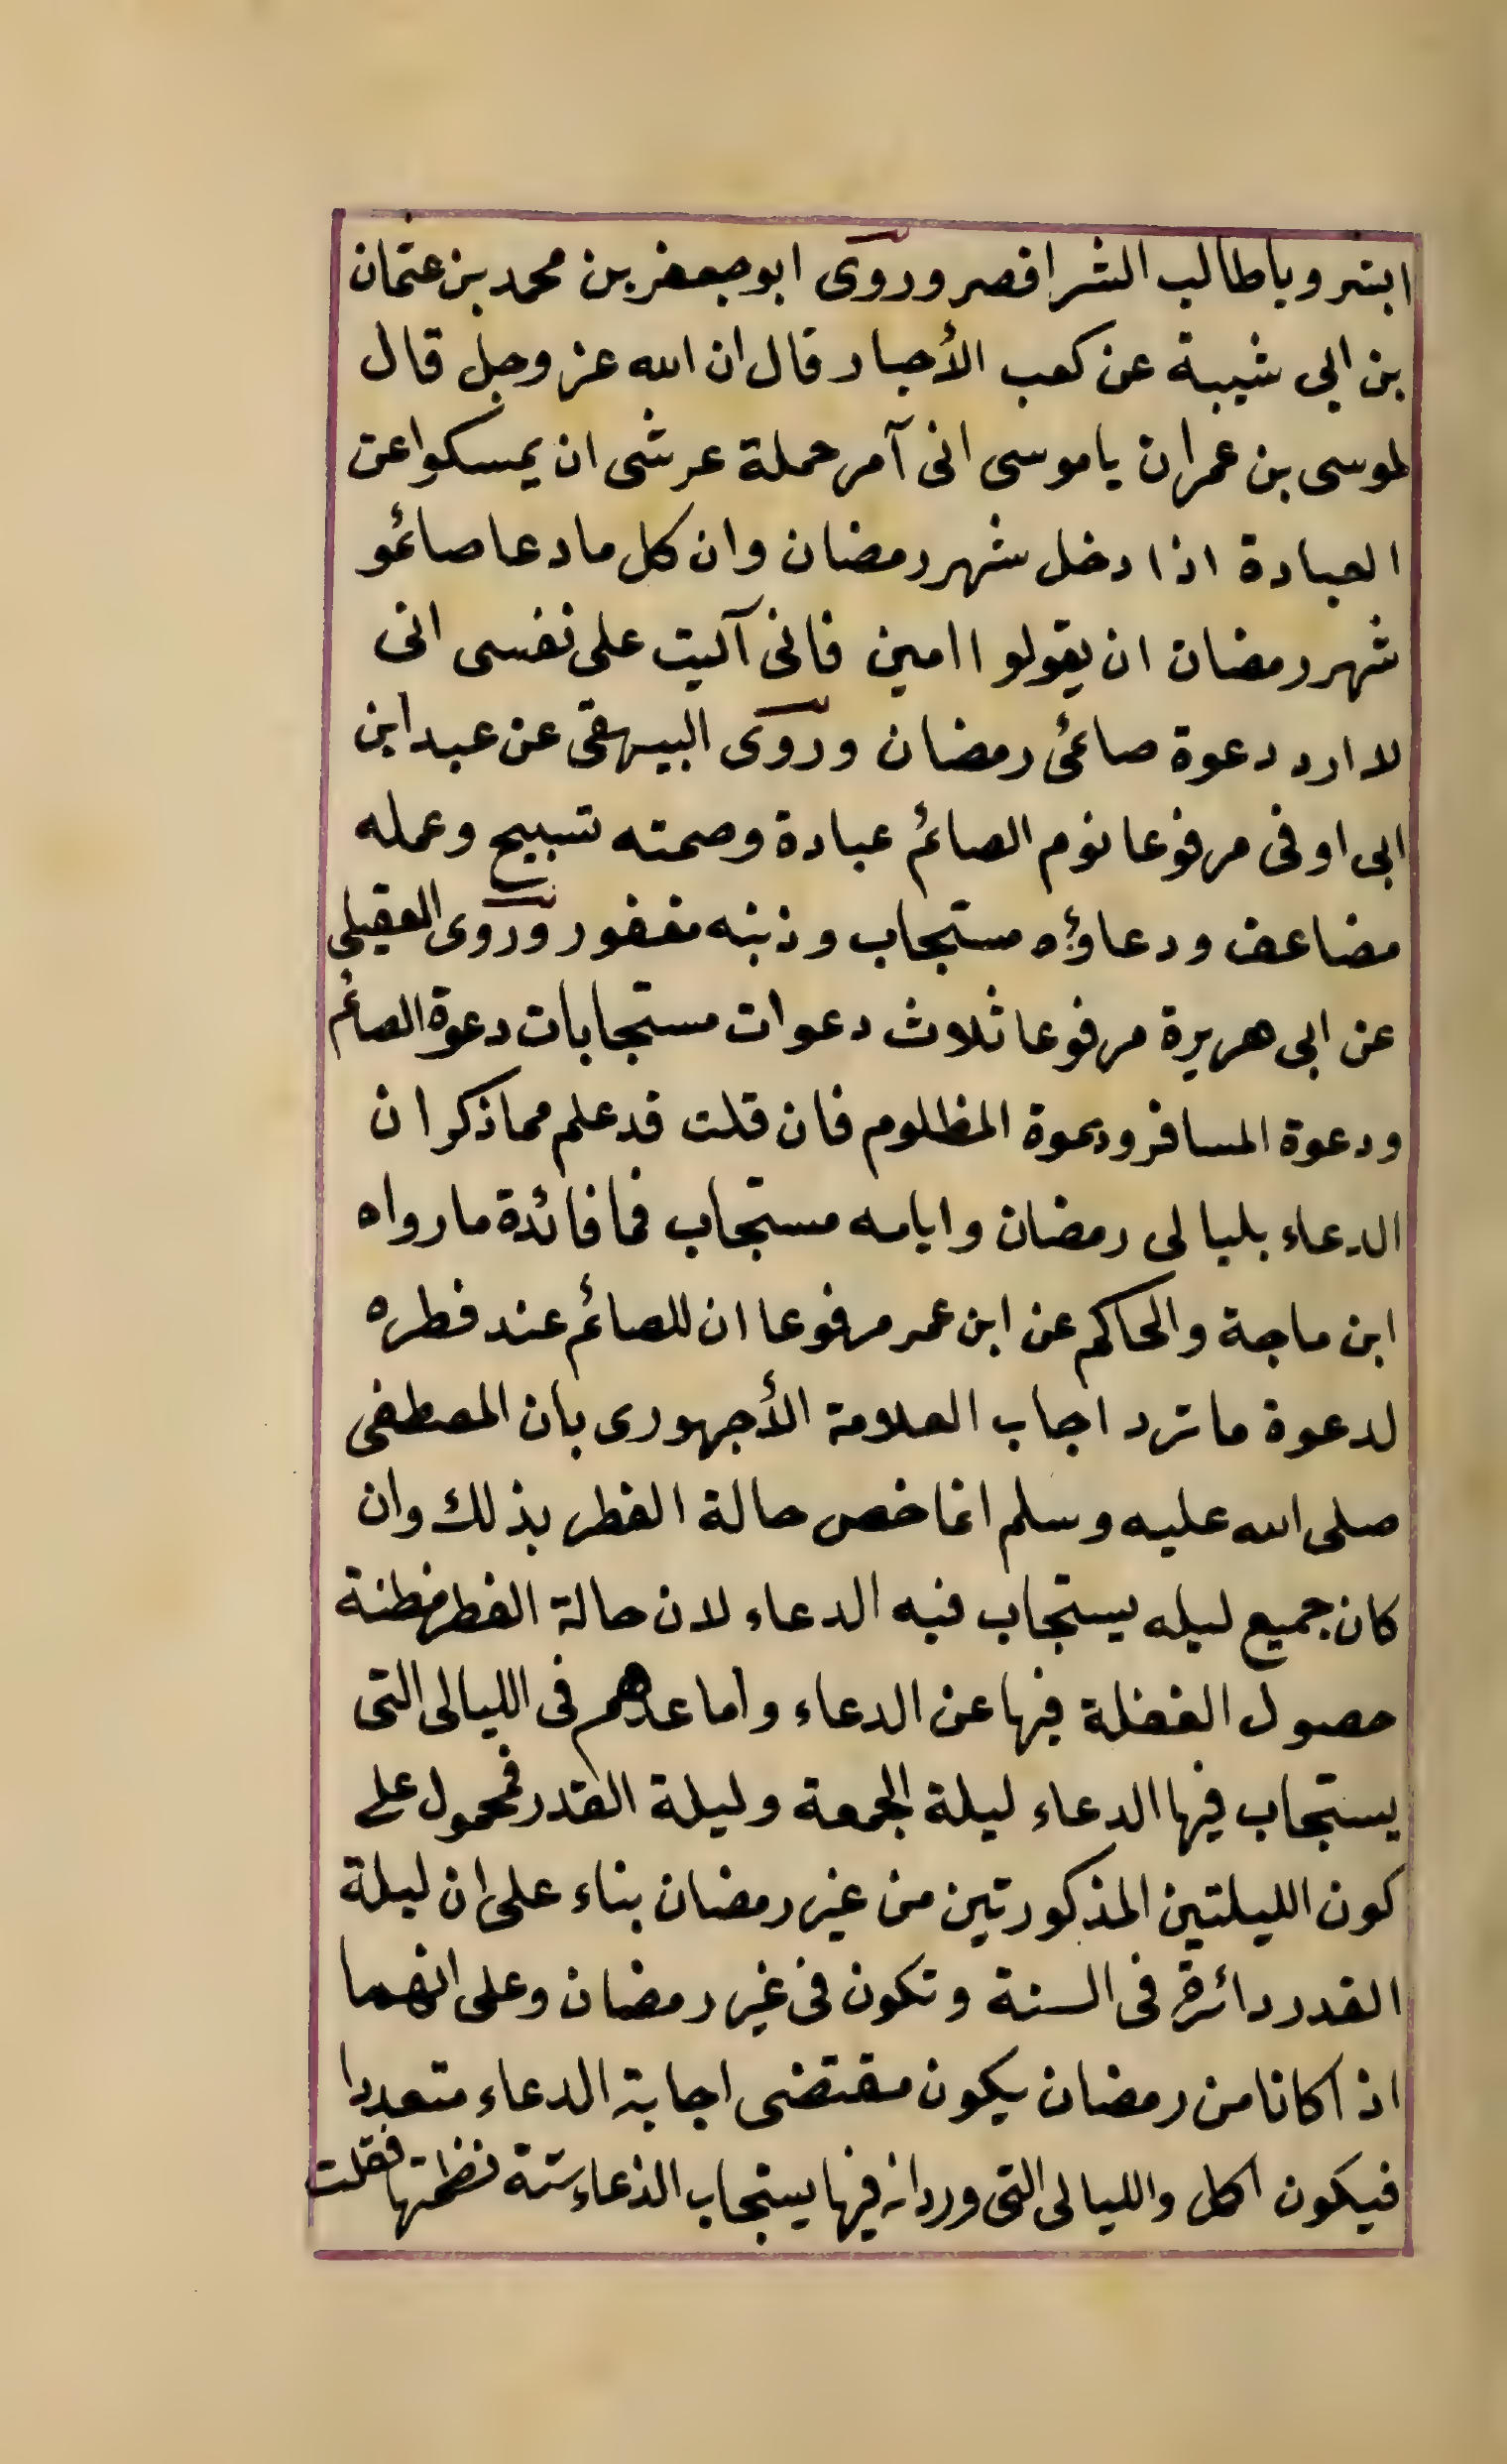 ابشر ويا طالب الشر اقصر وروى ابو جعفر بن محمد بن عثمان
بن ابي شيبة عن كعب الأحبار قال ان الله عز وجل قال
لموسى بن عمران يا موسى انى آمر حملة عرشى ان يمسكوا عن
العبادة اذا دخل شهر رمضان وان كل ما دعا صائمو
شهر رمضان ان يقولوا امين فانى آليت على نفسى انى
لا ارد دعوة صائمى رمضان وروى البيهقى عن عبد ابن
ابى اوفى مرفوعا نوم الصائم عبادة وصمته تسبيح وعمله
مضاعف ودعاؤه مستجاب وذنبه مغفور وروى العقيلى
عن ابى هريرة مرفوعا ثلاث دعوات مستجابات دعوة الصائم
ودعوة المسافر ودعوة المظلوم فان قلت قد علم مما ذكر ان
الدعاء بليالى رمضان وايامه مستجاب فما فائدة ما رواه
ابن ماجة والحاكم عن ابن عمر مرفوعا ان للصائم عند فطره
لدعوة ما ترد اجاب العلامة الأجهورى بان المصطفى
صلى الله عليه وسلم انما خص حالة الفطر بذلك وان
كان جميع ليله يستجاب فيه الدعاء لان حالة الفطر مظنة
حصول الغفلة فيها عن الدعاء واما عدهم فى الليالى التى
يستجاب فيها الدعاء ليلة الجمعة وليلة القدر فمحمول على
كون الليلتين المذكورتين من غير رمضان بناء على ان ليلة
القدر دائرة فى السنة وتكون فى غير رمضان وعلى انهما
اذا كانا من رمضان يكون مقتضى اجابة الدعاء متعددا
فيكون اكل والليالى التى ورد انه فيها يستجاب الدعاء ستة نظمتها فقلت